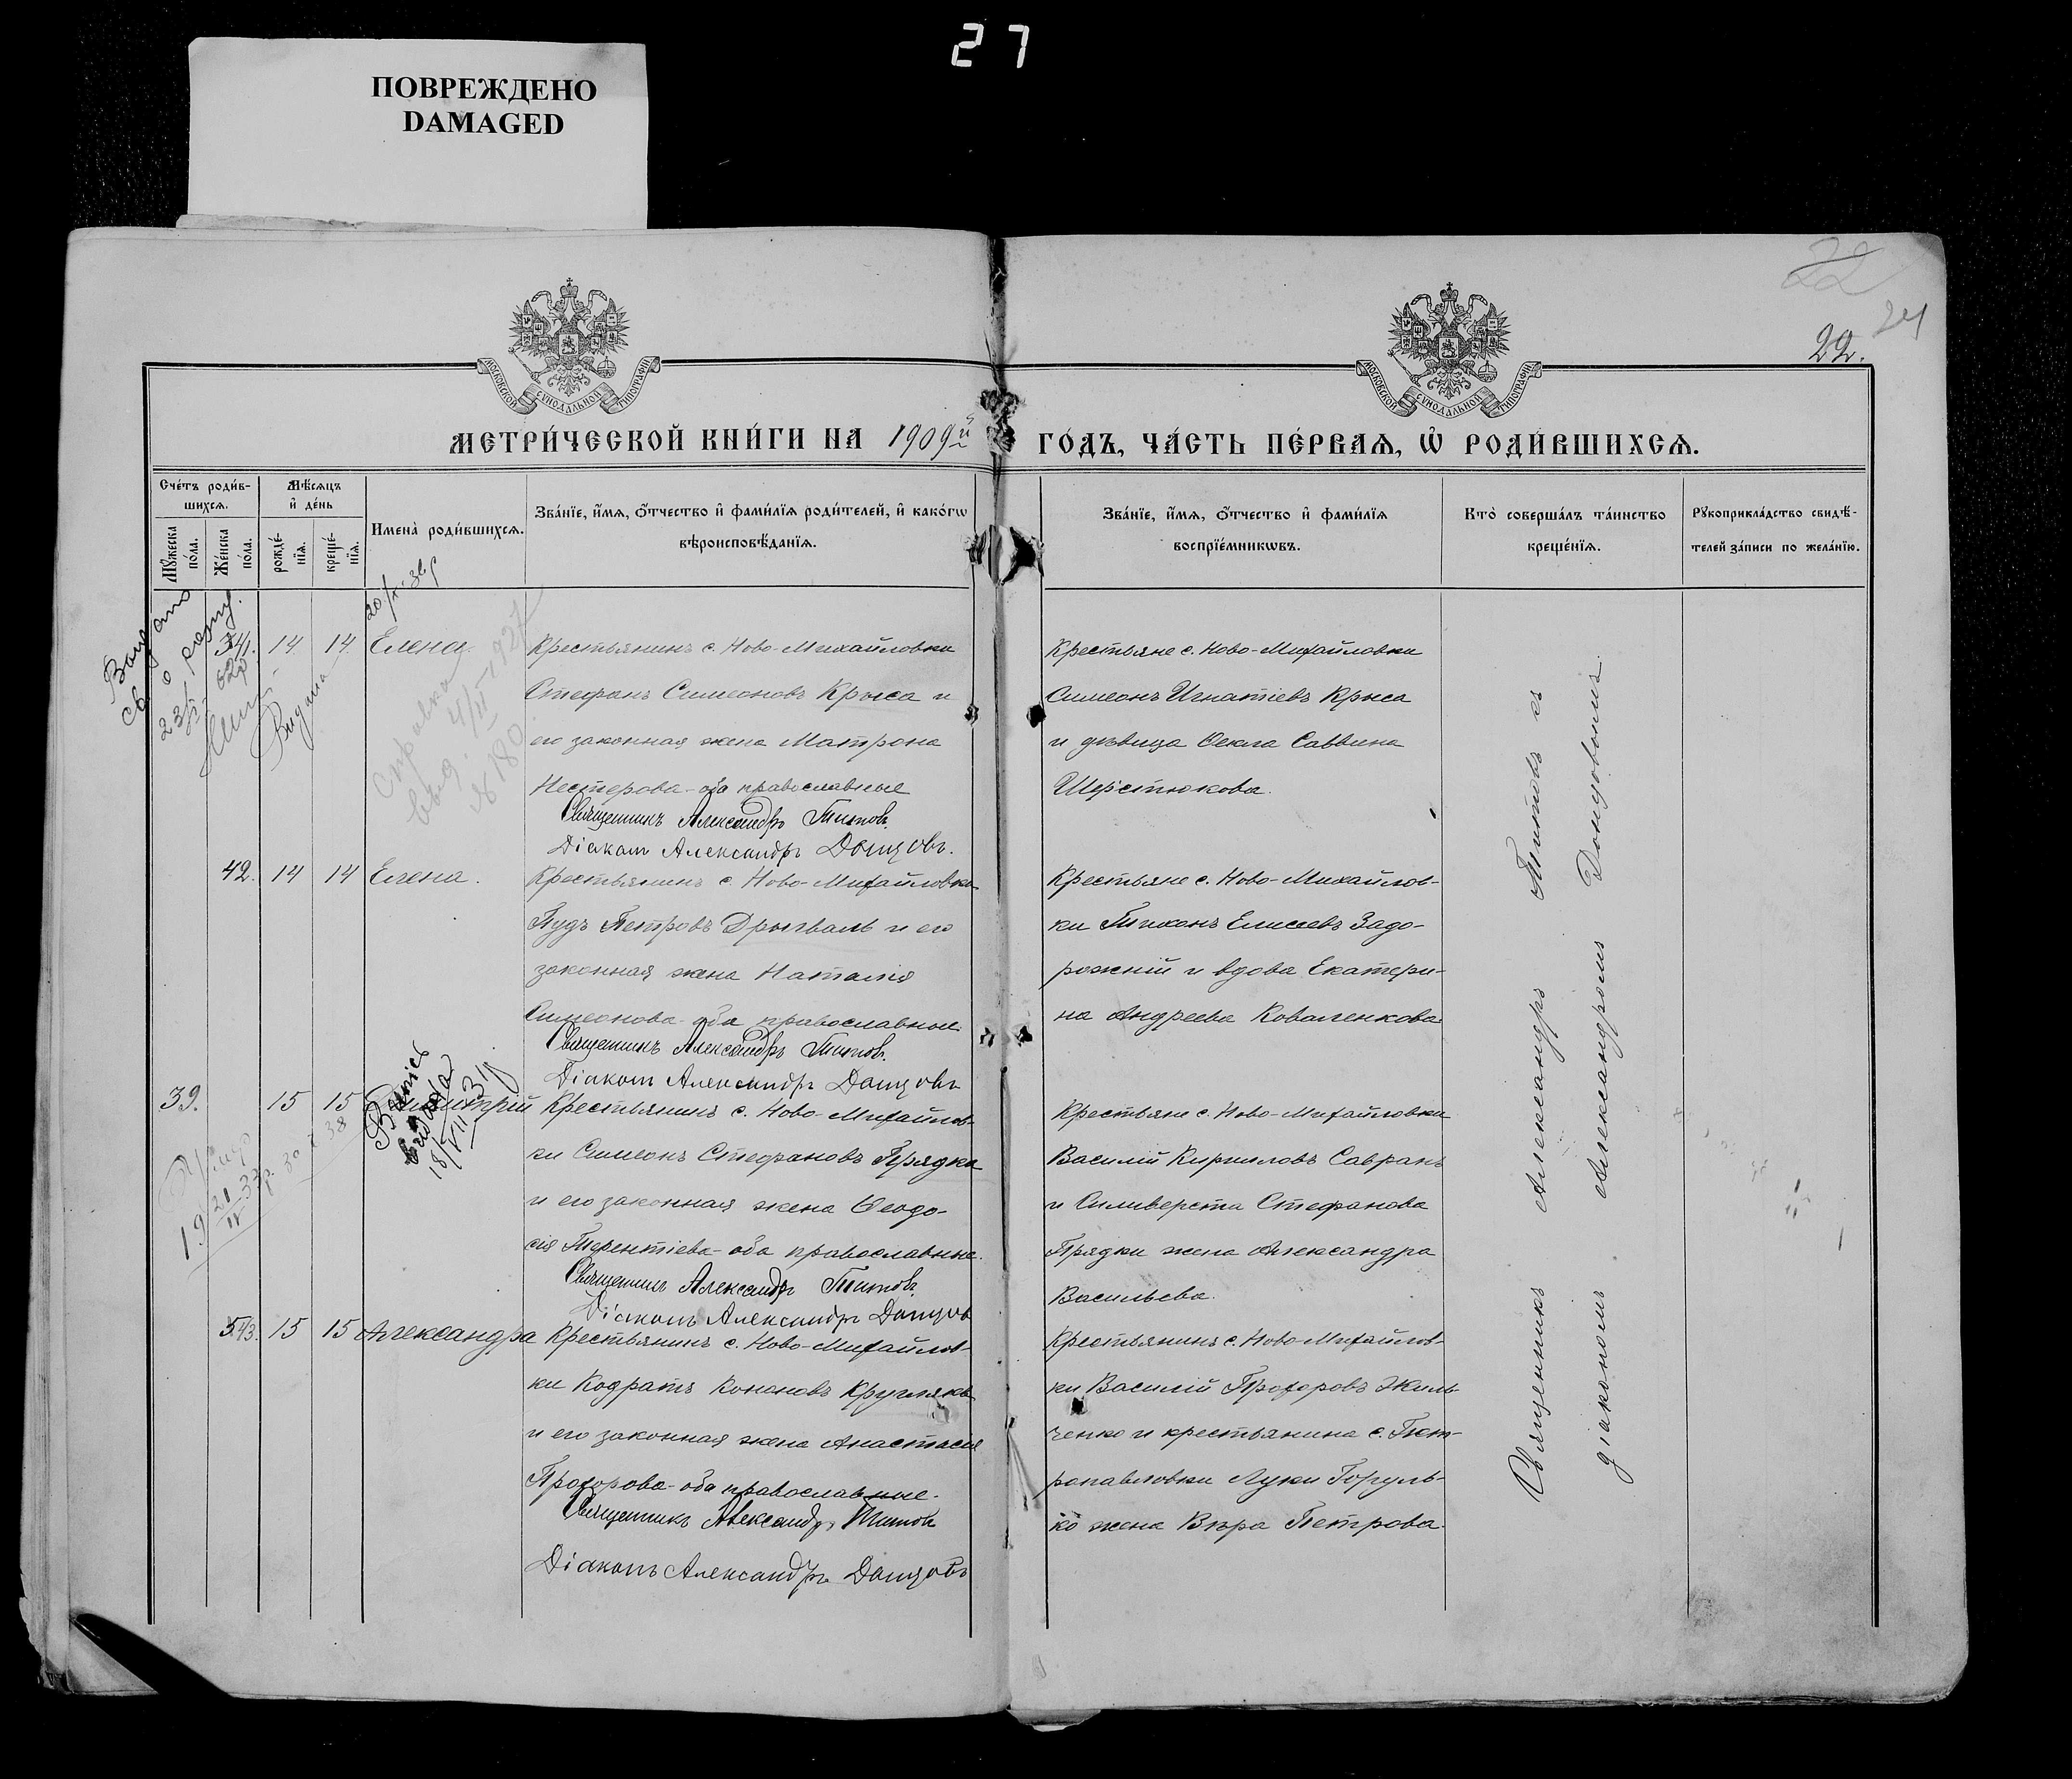 27
ПОВРЕЖДЕНО
DAMAGED
22
24
22.
МОСКОВСКОЙ СѴНОДАЛЬНОЙ ТИПОГРАФІИ
МОСКОВСКОЙ СѴНОДАЛЬНОЙ ТИПОГРАФІИ
МЕТРИ́ЧЕСКОЙ КНИ́ГИ НА 1909й ГО́ДЪ, ЧА́СТЬ ПЕ́РВАѦ, Ѡ҆ РОДИ́ВШИХСѦ.
Сче́тъ роди́в-
шихсѧ.
Мѣ́сѧцъ
и҆ де́нь
Мꙋ́жеска
по́ла.
Же́нска
по́ла.
рожде́-
нїѧ.
креще́-
нїѧ.
Имена̀ роди́вшихсѧ.
Зва́нїе, и҆́мѧ, ѻ҆́тчество и҆ фами́лїѧ роди́телей, и҆ како́гѡ
вѣроисповѣ́данїѧ.
Зва́нїе, и҆́мѧ, ѻ҆́тчество и҆ фами́лїѧ
воспрїе́мникѡвъ.
Кто̀ соверша́лъ та́инство
креще́нїѧ.
Рꙋкоприкла́дство свидѣ́-
телей за́писи по жела́нїю.
14 14 Елена
Крестьянинъ с. Ново-Михайловки
Стефанъ Симеоновъ Крыса и
его законная жена Матрона
Нестерова - оба православные
Священникъ Александръ Титовъ.
Діаконъ Александръ Донцовъ.
Крестьяне с. Ново-Михайловки
Симеонъ Игнатіевъ Крыса
и дѣвица Ѳекла Саввина
Шерстюкова.
Справка
выд. 4/II 1927
№ 180
42. 14 14 Елена.
Крестьянинъ с. Ново-Михайловки
Пудъ Петровъ Дрыгваль и его
законная жена Наталія
Симеонова - оба православные.
Священникъ Александръ Титовъ.
Діаконъ Александръ Донцовъ
Крестьяне с. Ново-Михайлов-
ки Тихонъ Елисеевъ Задо-
рожній и вдова Екатери-
на Андреева Коваленкова.
39. 15 15 Димитрій
Крестьянинъ с. Ново-Михайлов-
ки Симеонъ Стефановъ Прядка
и его законная жена Ѳеодо-
сія Терентіева - оба православные.
Священникъ Александръ Титовъ.
Діаконъ Александръ Донцовъ
Крестьяне с. Ново-Михайловки
Василій Кирилловъ Савранъ
и Силиверста Стефанова
Прядки жена Александра
Васильева.
43. 15 15 Александра
Крестьянинъ с. Ново-Михайлов-
ки Кодратъ Кононовъ Круглякъ
и его законная жена Анастасія
Прохорова - оба православные.
Священникъ Александръ Титовъ
Діаконъ Александръ Донцовъ
Крестьянинъ с. Ново-Михайлов-
ки Василій Прохоровъ Жиль-
ченко и крестьянина с. Пет-
ропавловки Луки Горуль-
ко жена Вѣра Петрова.
Священникъ Александръ Титовъ съ
діакономъ Александромъ Донцовымъ.